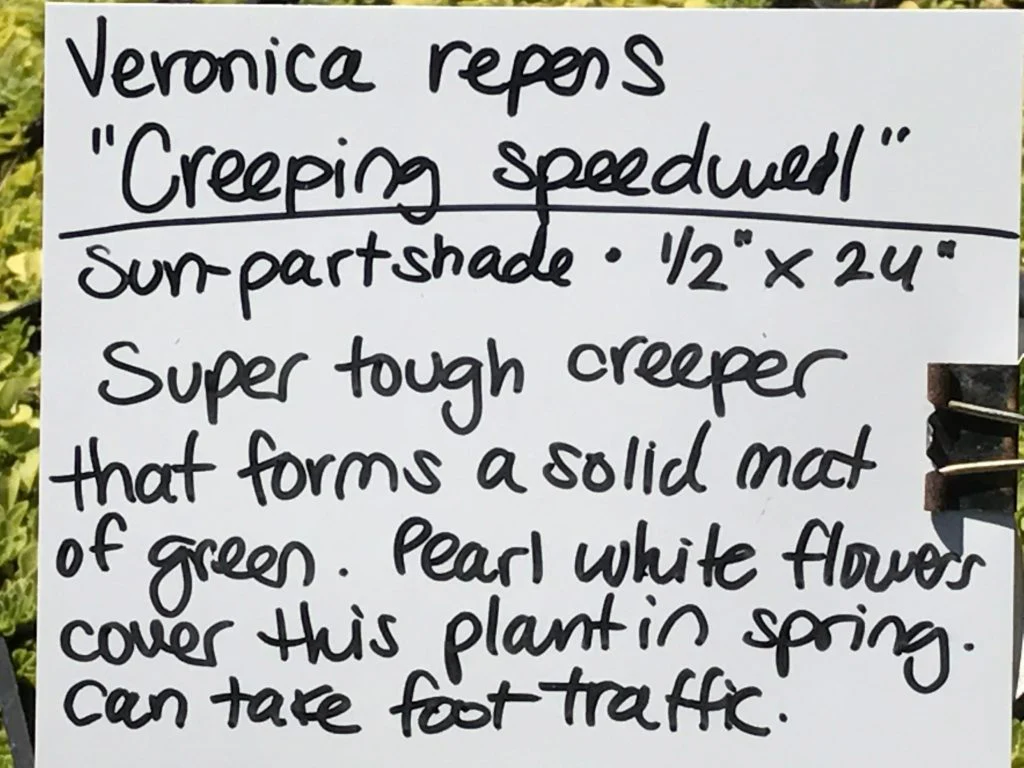 Veronica repens
"Creeping speedwell"
Sun-part shade • 1/2" x 24"
Super tough creeper
that forms a solid mat
of green. Pearl white flowers
cover this plant in spring.
Can take foot traffic.